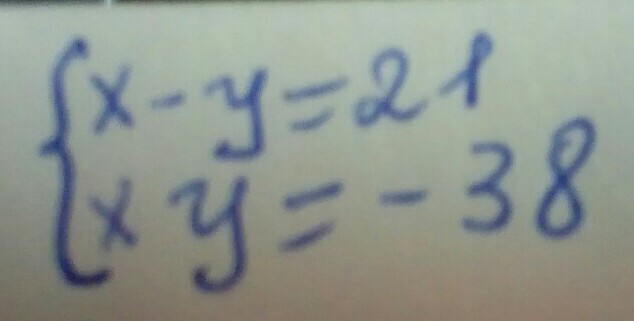 x - y = 21
xy = - 38